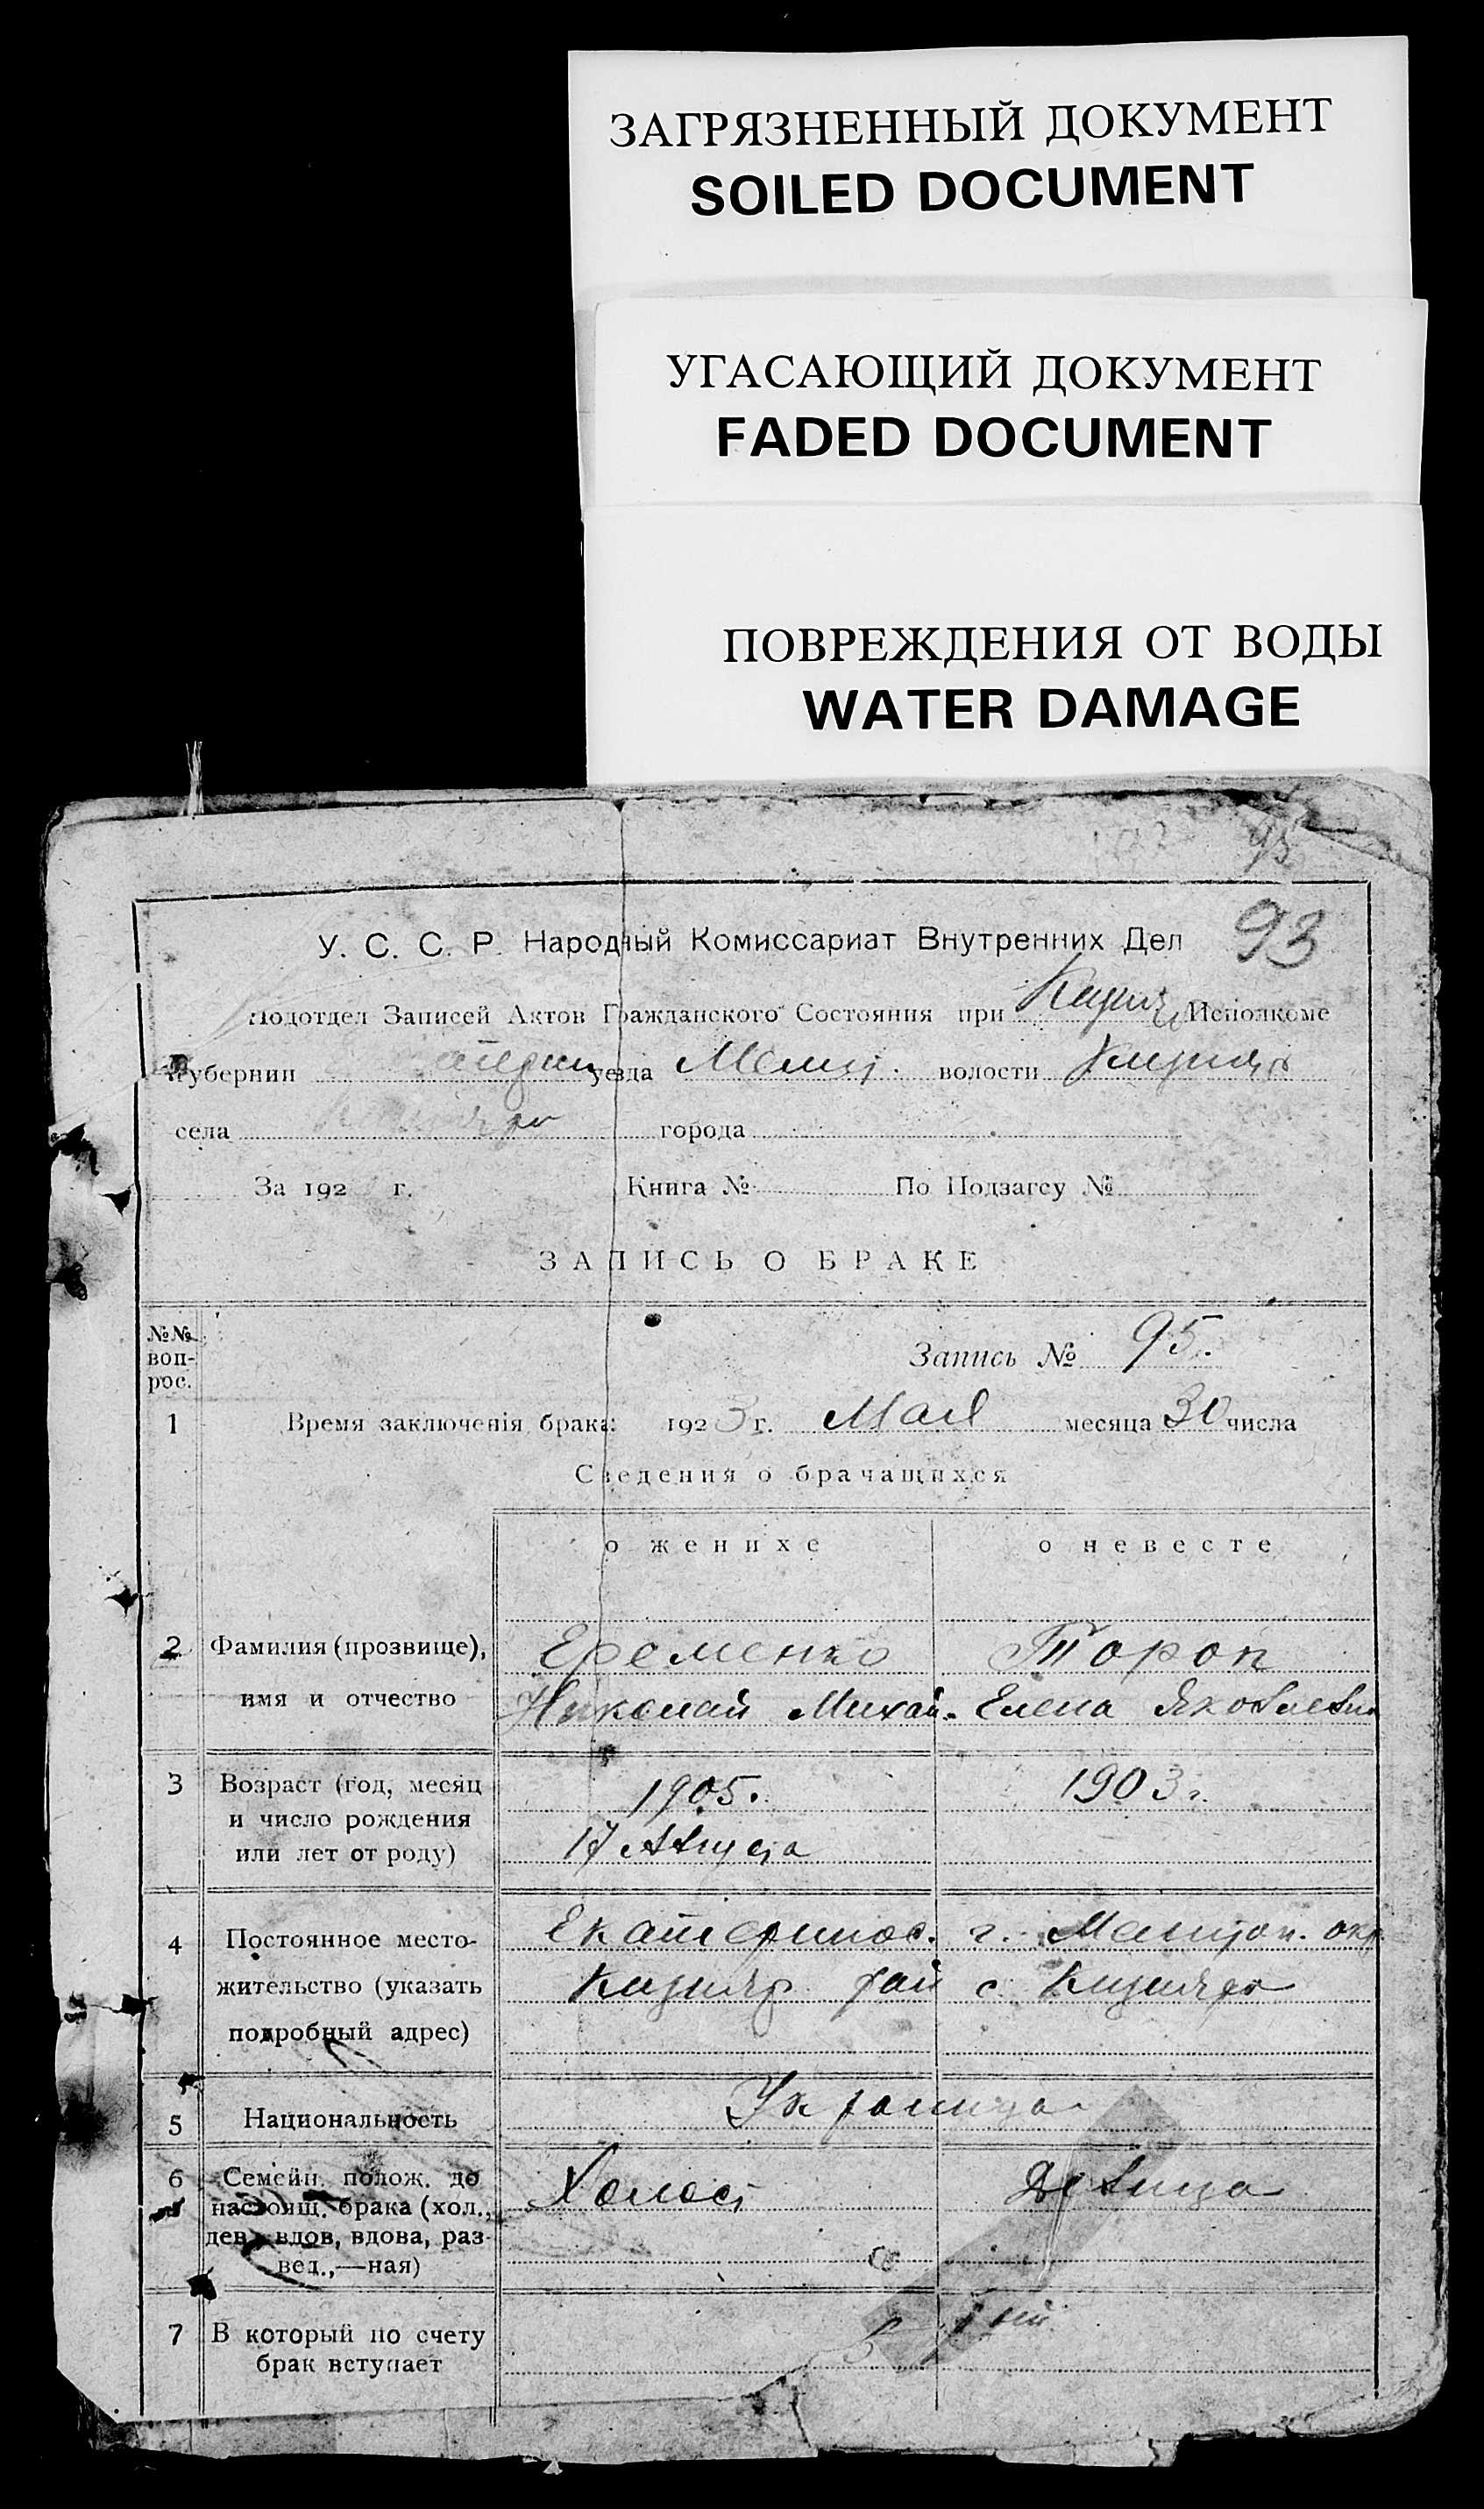 ЗАГРЯЗНЕННЫЙ ДОКУМЕНТ
SOILED DOCUMENT
УГАСАЮЩИЙ ДОКУМЕНТ
FADED DOCUMENT
ПОВРЕЖДЕНИЯ ОТ ВОДЫ
WATER DAMAGE
95
93
У. С. С. Р. Народный Комиссариат Внутренних Дел
Подотдел Записей Актов Гражданского Состояния при Исполкоме
Губернии уезда Мелит. волости Кизияр
села города
За 192 г. Книга № По Подзагсу №
ЗАПИСЬ О БРАКЕ
№№ воп-рос.
Запись № 95.
1 Время заключенія брака: 1923 г. Мая месяца 30 числа
Сведения о брачащихся
о женихе о невесте
2 Фамилия (прозвище), Еременко Тороп
имя и отчество Николай Михай. Елена Яковлевна
3 Возраст (год, месяц 1905. 1903 г.
и число рождения
или лет от роду) 17 Августа
4 Постоянное место- Екатеринос. г. Мелитоп. окр.
жительство (указать Кизияр рай с. Кизияр
подробный адрес)
5 Национальность Украинца
6 Семейн. полож. до Холост Девица
настоящ. брака (хол.,
дев., вдов, вдова, раз-
вед.,—ная)
7 В который по счету
брак вступает